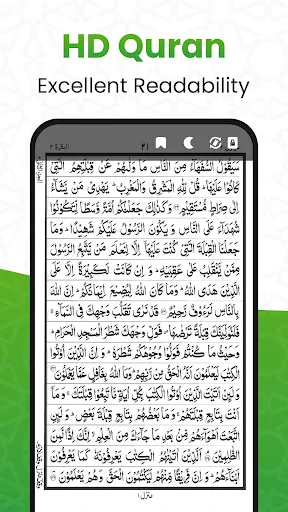 HD Quran
Excellent Readability
البقرة ٢
٢١
سَيَقُوْلُ السُّفَهَآءُ مِنَ النَّاسِ مَا وَلّٰىهُمْ عَنْ قِبْلَتِهِمُ الَّتِيْ
كَانُوْا عَلَيْهَا ؕ قُلْ لِّلّٰهِ الْمَشْرِقُ وَالْمَغْرِبُ ؕ يَهْدِيْ مَنْ يَّشَآءُ
اِلٰى صِرَاطٍ مُّسْتَقِيْمٍ وَكَذٰلِكَ جَعَلْنٰكُمْ اُمَّةً وَّسَطًا لِّتَكُوْنُوْا
شُهَدَآءَ عَلَى النَّاسِ وَيَكُوْنَ الرَّسُوْلُ عَلَيْكُمْ شَهِيْدًا ؕ وَمَا
جَعَلْنَا الْقِبْلَةَ الَّتِيْ كُنْتَ عَلَيْهَآ اِلَّا لِنَعْلَمَ مَنْ يَّتَّبِعُ الرَّسُوْلَ
مِمَّنْ يَّنْقَلِبُ عَلٰى عَقِبَيْهِ ؕ وَاِنْ كَانَتْ لَكَبِيْرَةً اِلَّا عَلَى
الَّذِيْنَ هَدَى اللّٰهُ ؕ وَمَا كَانَ اللّٰهُ لِيُضِيْعَ اِيْمَانَكُمْ ؕ اِنَّ اللّٰهَ
بِالنَّاسِ لَرَءُوْفٌ رَّحِيْمٌ قَدْ نَرٰى تَقَلُّبَ وَجْهِكَ فِي السَّمَآءِ ۚ
فَلَنُوَلِّيَنَّكَ قِبْلَةً تَرْضٰىهَا فَوَلِّ وَجْهَكَ شَطْرَ الْمَسْجِدِ الْحَرَامِ ؕ
وَحَيْثُ مَا كُنْتُمْ فَوَلُّوْا وُجُوْهَكُمْ شَطْرَهٗ ؕ وَاِنَّ الَّذِيْنَ اُوْتُوا
الْكِتٰبَ لَيَعْلَمُوْنَ اَنَّهُ الْحَقُّ مِنْ رَّبِّهِمْ ؕ وَمَا اللّٰهُ بِغَافِلٍ عَمَّا يَعْمَلُوْنَ
وَلَئِنْ اَتَيْتَ الَّذِيْنَ اُوْتُوا الْكِتٰبَ بِكُلِّ اٰيَةٍ مَّا تَبِعُوْا قِبْلَتَكَ ۚ وَمَآ
اَنْتَ بِتَابِعٍ قِبْلَتَهُمْ ۚ وَمَا بَعْضُهُمْ بِتَابِعٍ قِبْلَةَ بَعْضٍ ؕ وَلَئِنِ
اتَّبَعْتَ اَهْوَآءَهُمْ مِّنْۢ بَعْدِ مَا جَآءَكَ مِنَ الْعِلْمِ ۙ اِنَّكَ اِذًا لَّمِنَ
الظّٰلِمِيْنَ اَلَّذِيْنَ اٰتَيْنٰهُمُ الْكِتٰبَ يَعْرِفُوْنَهٗ كَمَا يَعْرِفُوْنَ
اَبْنَآءَهُمْ ؕ وَاِنَّ فَرِيْقًا مِّنْهُمْ لَيَكْتُمُوْنَ الْحَقَّ وَهُمْ يَعْلَمُوْنَ
منزل ١